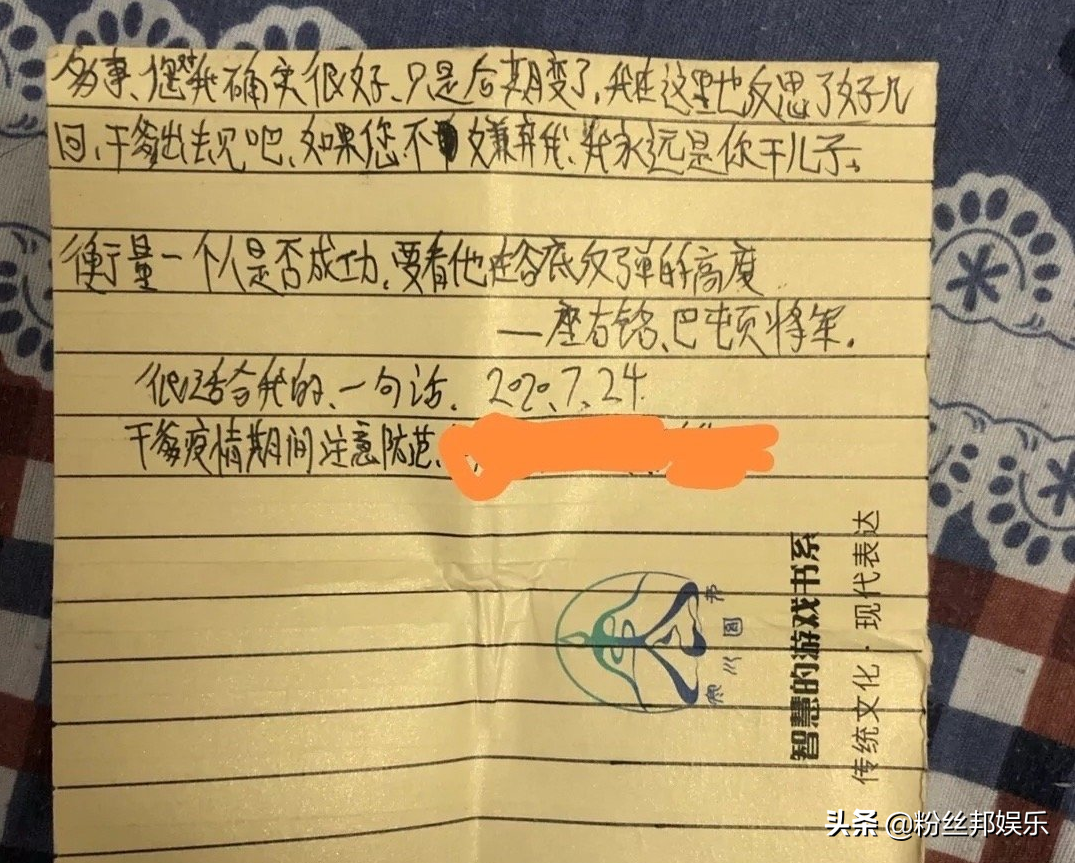 多事、您对我确实很好、只是后期变了,我在这里也反思了好几
回,干爹出去见吧、如果您不嫌弃我、我永远是你干儿子。
衡量一个人是否成功,要看他跌谷底反弹的高度
—座右铭、巴顿将军.
很适合我的、一句话、2020.7.24.
干爹疫情期间注意防范、
智慧的游戏书系
传统文化·现代表达
头条 @粉丝邦娱乐